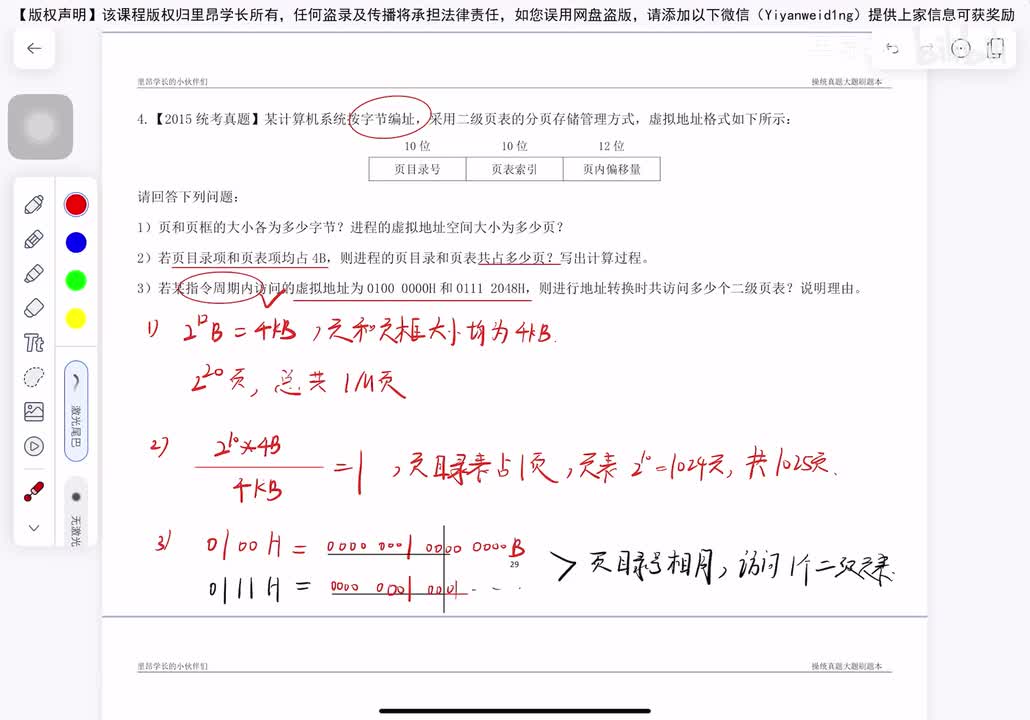 【版权声明】该课程版权归里昂学长所有，任何盗录及传播将承担法律责任，如您误用网盘盗版，请添加以下微信（Yiyanweid1ng）提供上家信息可获奖励
里昂学长的小伙伴们 操统真题大题刷题本
4.【2015 统考真题】某计算机系统按字节编址，采用二级页表的分页存储管理方式，虚拟地址格式如下所示：
10 位 10 位 12 位
页目录号 页表索引 页内偏移量
请回答下列问题：
1）页和页框的大小各为多少字节？进程的虚拟地址空间大小为多少页？
2）若页目录项和页表项均占 4B，则进程的页目录和页表共占多少页？写出计算过程。
3）若某指令周期内访问的虚拟地址为 0100 0000H 和 0111 2048H，则进行地址转换时共访问多少个二级页表？说明理由。
1) 2¹²B = 4KB，页和页框大小均为4KB.
2²⁰页，总共 1M页
2) 2¹⁰×4B
4KB
= 1，页目录表占1页，页表 2¹⁰=1024页，共1025页.
3) 0100H = 0000 0001 0000 0000B
0111H = 0000 0001 0001 - - ·
> 页目录号相同，访问1个二级页表.
29
Tt
激光尾巴
无激光
里昂学长的小伙伴们 操统真题大题刷题本